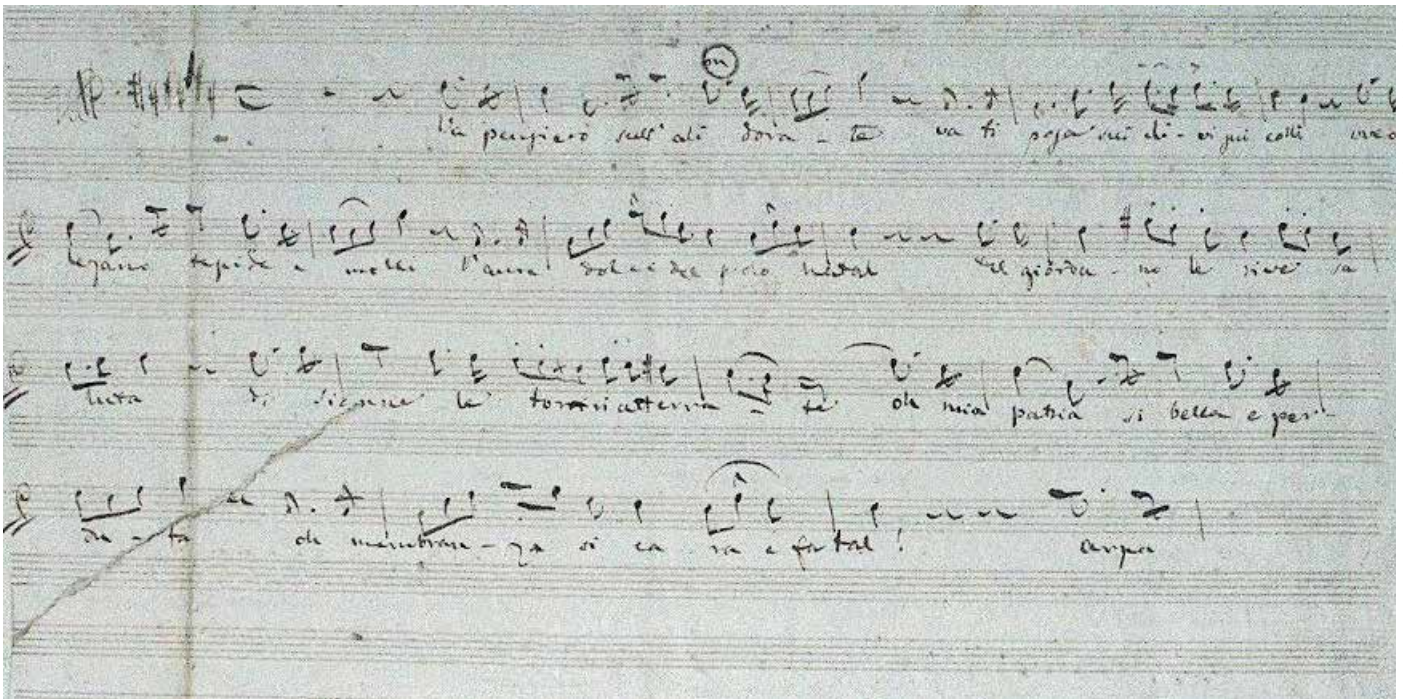 Va pensiero sull'ali dora - te va ti posa sui cli - vi sui colli ove o
lezano tepide e molli l'aure dolci del solo natal Del giorda - no le rive sa
luta di Sionne le torri atterra - te oh mia patria si bella e per-
du - ta oh membran - za si ca - ra e fatal! arpa